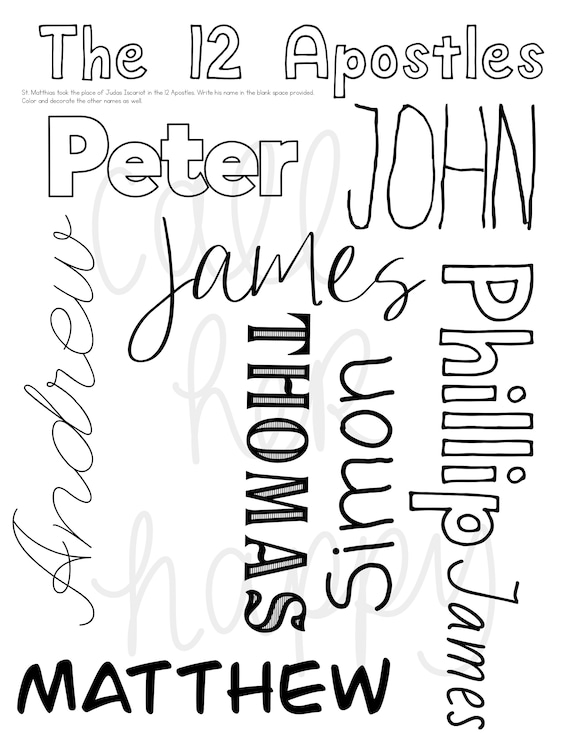 The 12 Apostles
St. Matthias took the place of Judas Iscariot in the 12 Apostles. Write his name in the blank space provided.
Color and decorate the other names as well.
Peter
JOHN
Andrew
James
Phillip
THOMAS
Simon
James
MATTHEW
call
her
happy